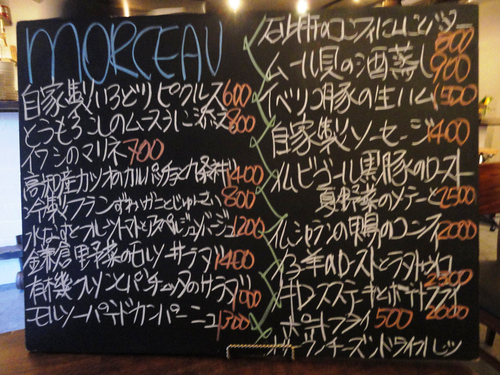 MORCEAU
自家製いろどりピクルス600
とうもろこしのムースうに添え800
イワシのマリネ700
高知産カツオのカルパッチョ 1400
冷製フランずわいがにとじゅんさい800
水なすとフルーツトマト 1200
鎌倉野菜のモルソーサラダ1400
有機 のサラダ1000
モルソーパテドカンパーニュ1300
砂肝のコンフィ 800
ムール貝の酒蒸し900
イベリコ豚の生ハム1500
自家製ソーセージ1400
黒豚のロースト
夏野菜のソテーと2500
鴨のコンフィ2000
仔羊のローストとラタトゥイユ2500
ステーキとポテトフライ2000
ポテトフライ500
チーズ、ドライフルーツ